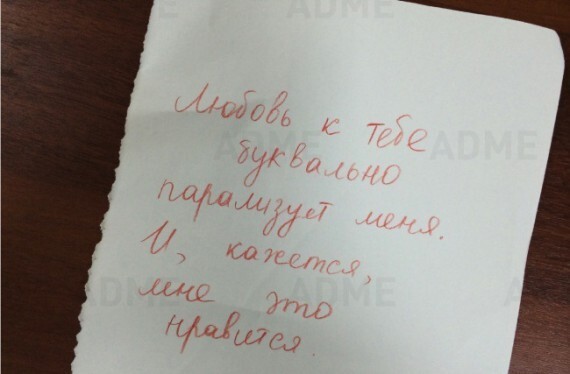 Любовь к тебе
буквально
парализует меня.
И, кажется,
мне это
нравится.
ADME
ADME
ADME
ADME
ADME
ADME